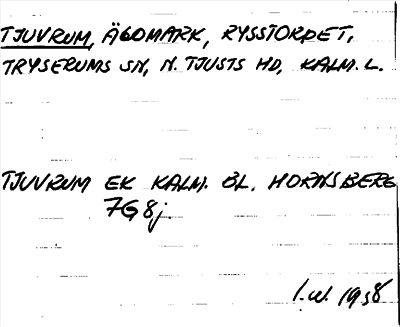 TJUVRUM, ÄGOMARK, RYSSTORPET,
TRYSERUMS SN, N. TJUSTS HD, KALM. L.
TJUVRUM EK KALM. BL. HORNSBERG
7G 8j.
I.W. 1958